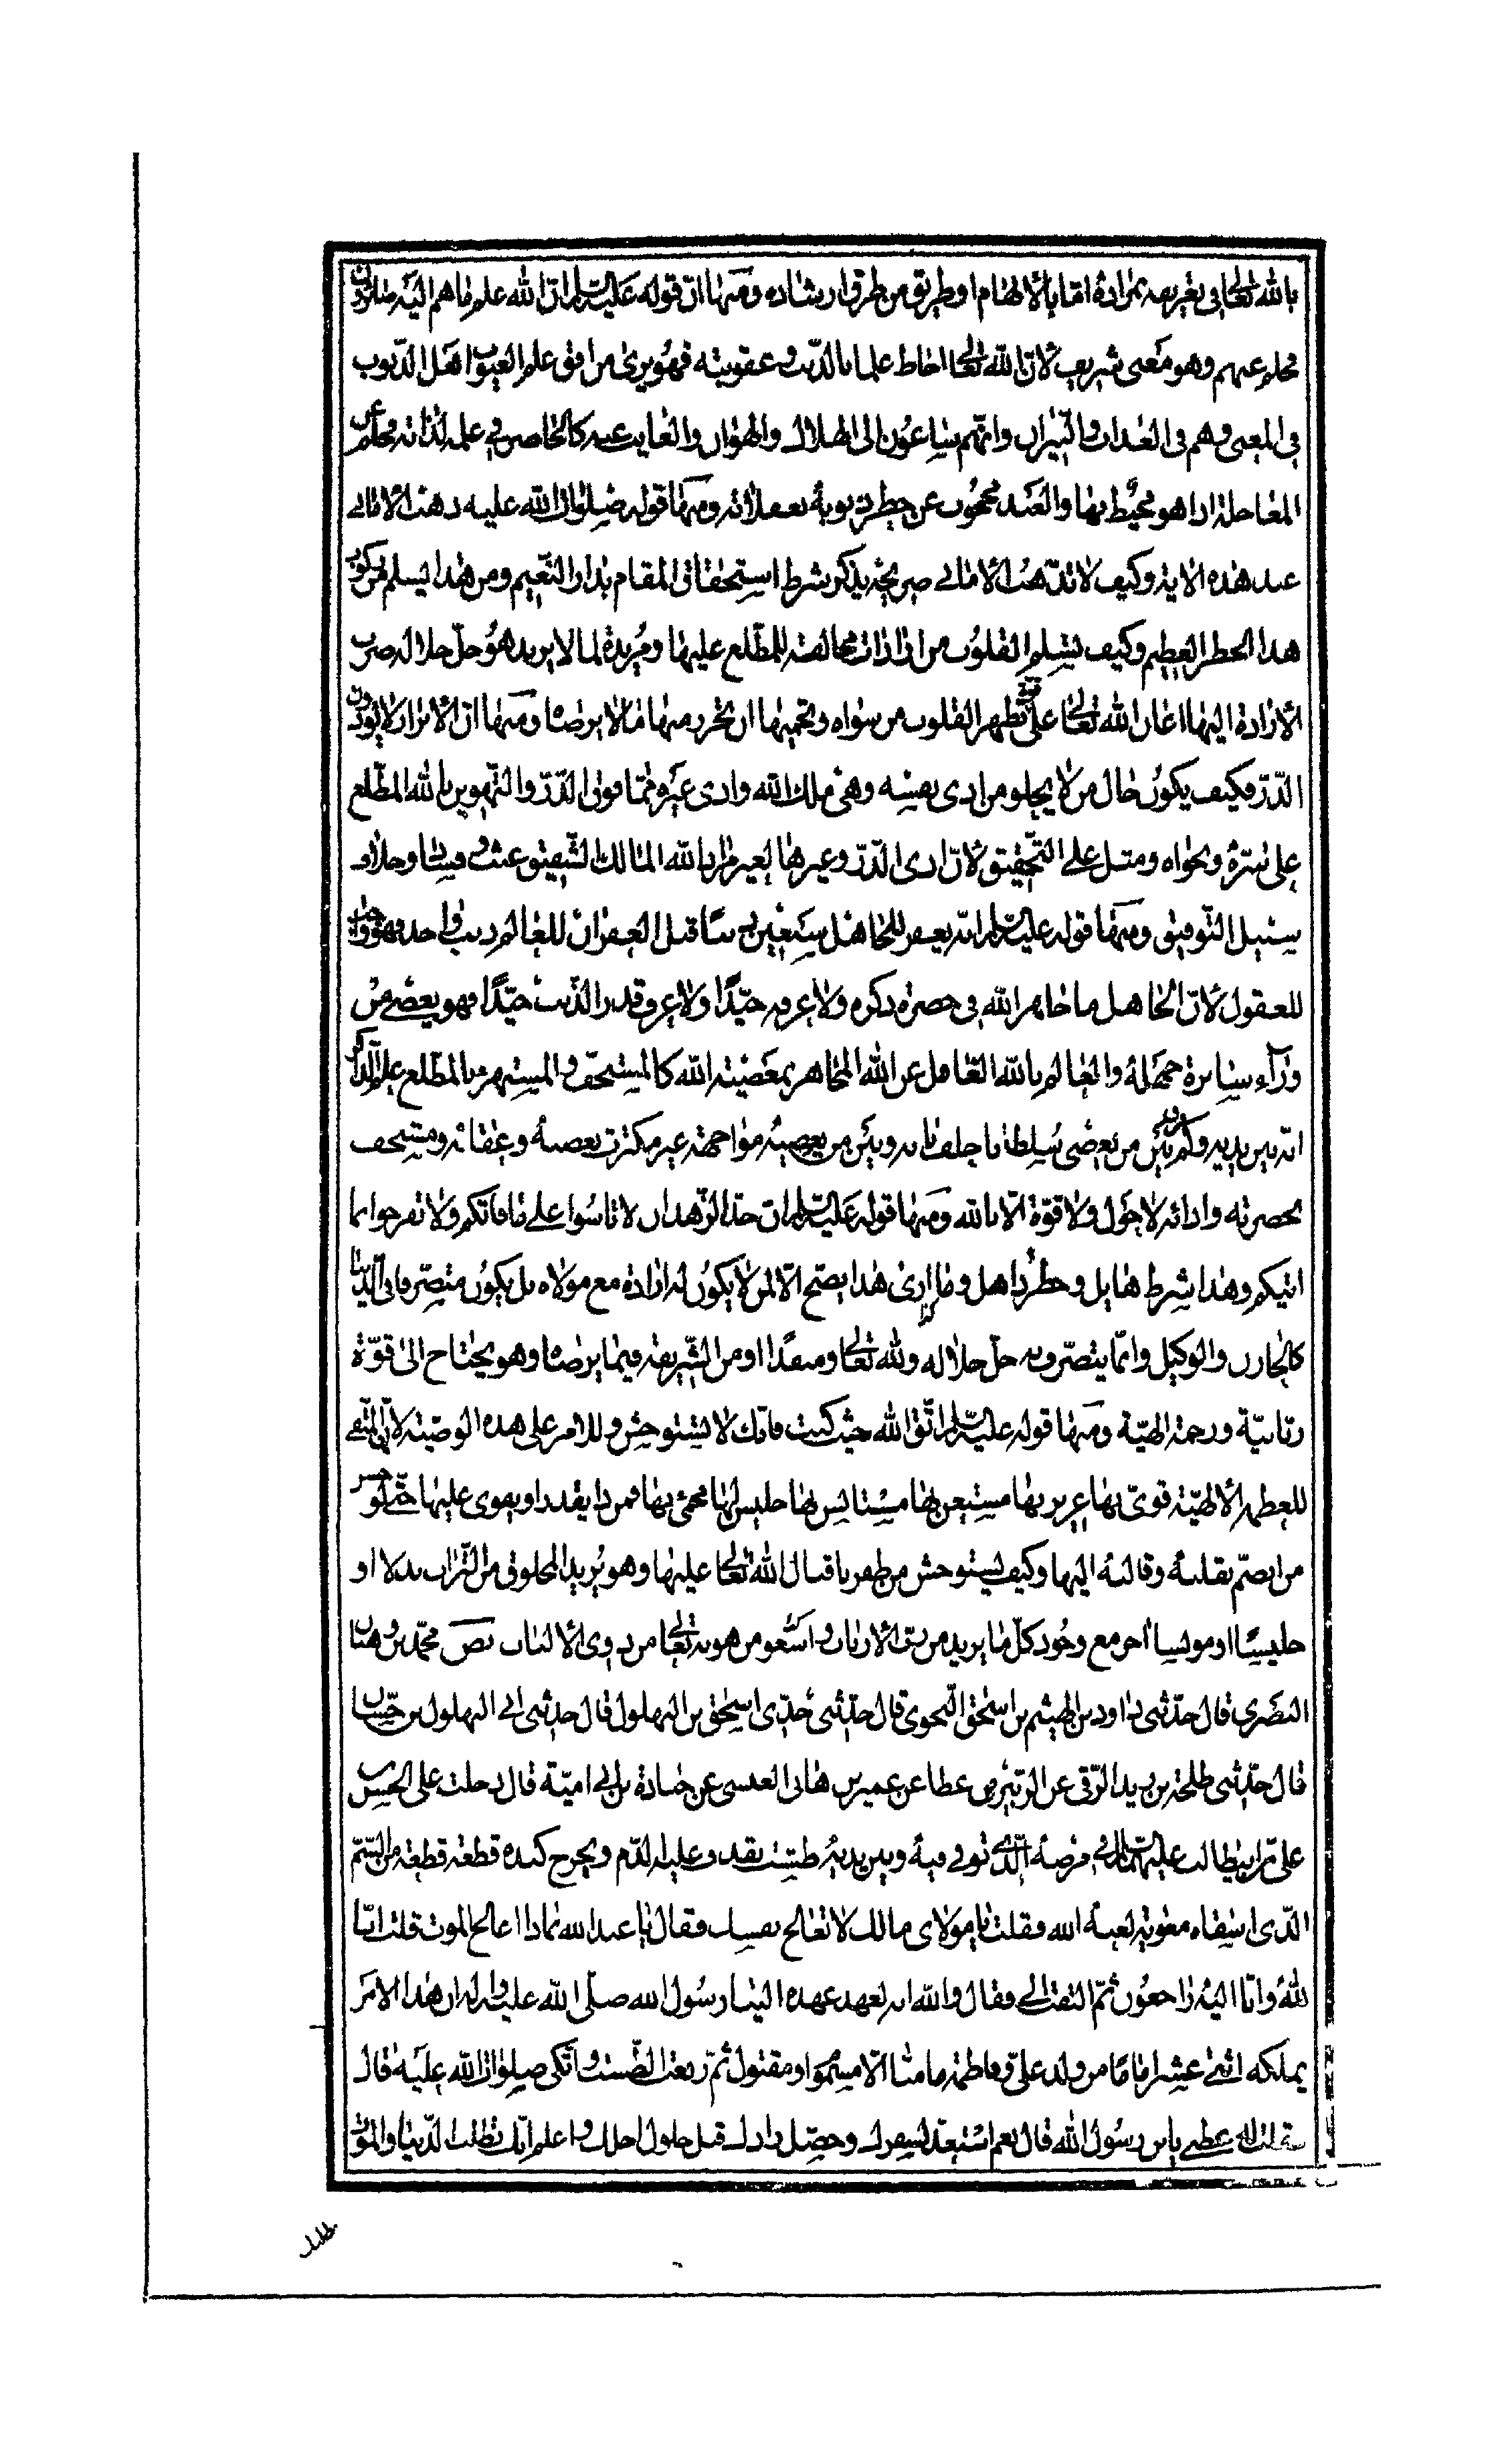 بالله تعالى في تعريفه بمراده امّا بالالهام او طريق من طرق ارشاده ومنها انّ قوله عليه السّلام انّ الله علم ما هم اليه صائرون
فحلم عنهم وهو معنى شريف لانّ الله تعالى احاط علما بالذّنب وعقوبته فهو يرى من افق علم الغيوب اهل الذّنوب
في المعنى وهم في العذاب والنّيران وانّهم ساعون الى الهلاك والهوان والغايب عنه كالحاضر في علمه لذاته فحلم عن
المعاجلة اذا هو محيط بها والعبد محجوب عن خطر ذنوبه بغفلاته ومنها قوله صلوات الله عليه ذهبت الامانى
عند هذه الاية وكيف لا تذهب الامانى صريحة يذكر شرط استحقاق المقام بدار النّعيم ومن هذا يسلم من ركوب
هذا الخطر العظيم وكيف تسلم القلوب من ارادات مخالفة للمطّلع عليها ومريدة لما لا يريد هو جلّ جلاله صرف
الارادة اليها اعان الله تعالى على تطهير القلوب من سواه وتحميها ان تخرج منها ما لا يرضاه ومنها انّ الابرار لا يؤذون
الذّرّ فكيف يكون حال من لا يخلو من اذى نفسه وهى ملك الله واذى غيره ممّا فوق الذّرّ والتّهوين بالله المطّلع
على سرّه ونجواه ومتل على التّحقيق لانّ اذى الذّرّ وغيرها لغير مراد الله المالك الشّفيق عبث وفساد وخلاف
سبيل التّوفيق ومنها قوله عليه السّلام انّه يغفر للجاهل سبعين ذنبا قبل الغفران للعالم ذنب واحد فهو واضح
للعقول لانّ الجاهل ما جاهر الله في حضرة ذكره ولا عرفه جيّدًا ولا عرف قدر الذّنب جيّدًا فهو يعصى من
وراء ستارة جهله والعالم بالله العامل عن الله المجاهر بمعصيته الله كالمستخفّ والمستهزء بالمطّلع عليه الذاكر
انّه بين يديه وكم بين من يعصى سلطانا خلف بابه وبين من يعصيه مواجهة غير مكترث بغضبه وعقابه ومستخف
بحضرته وادابه لا حول ولا قوّة الّا بالله ومنها قوله عليه السّلام انّ حدّ الزّهد ان لا تاسوا على ما فاتكم ولا تفرحوا بما
اتيكم وهذا شرط هايل وخطر ذاهل وما ارى هذا يصحّ الّا لمن لا يكون له ارادة مع مولاه بل يكون متصرّفا في الدّنيا
كالخازن والوكيل وانّما يتصرّف به جلّ جلاله ولله تعالى ومنفّذا اومر الشّريفة فيما يرضاه وهو يحتاج الى قوّة
ربّانيّة ورحمة الهيّة ومنها قوله عليه السّلام اتّق الله حيث كنت فانّك لا تستوحش وللامر على هذه الوصيّة لانّ المتّقى
للعظمة الالهيّة قوىّ بها عزيز بها مستغن بها مستانس بها جليس لها محمى بها فمن ذا يقدر او يقوى عليها حتى لو خسر
من انضمّ بقلبه وقالبه اليها وكيف يستوحش من ظفر باقبال الله تعالى عليها وهو يريد المخلوق من التّراب بدلا او
جليسًا او مونسا اخر مع وجود كلّ ما يريد من ربّ الارباب واستعومن هو به تعالى من ذوى الالباب نصّ محمّد بن وهبان
البصرى قال حدّثنى داود بن الهيثم بن اسحق النّحوى قال حدّثنى جدّى اسحق بن البهلول قال حدّثنى ابى البهلول بن حسّان
قال حدّثنى طلحة بن زيد الرّقى عن الزّبير بن عطا عن عمير بن هانى العبسى عن جنادة بن ابى اميّة قال دخلت على الحسن بن
علىّ بن ابيطالب عليهما السلام في مرضه الّذى توفى فيه وبين يديه طست يقذف عليه الدّم ويخرج كبده قطعة قطعة من السّمّ
الّذى اسقاه معوية لعنه الله فقلت يا مولاى مالك لا تعالج نفسك فقال يا عبد الله بماذا اعالج الموت قلت انّا
لله وانّا اليه راجعون ثمّ التفت الى فقال والله انه لعهد عهده الينا رسول الله صلّى الله عليه واله ان هذا الامر
يملكه اثنى عشر اماما من ولد علىّ وفاطمة ما منّا الّا مسموم او مقتول ثمّ رفعت الطّست واتّكى صلوات الله عليه قال
فقلت له عظنى يا بن رسول الله قال نعم استعدّ لسفرك وحصّل زادك قبل حلول اجلك واعلم انّك تطلب الدّنيا والموت
يطلبك